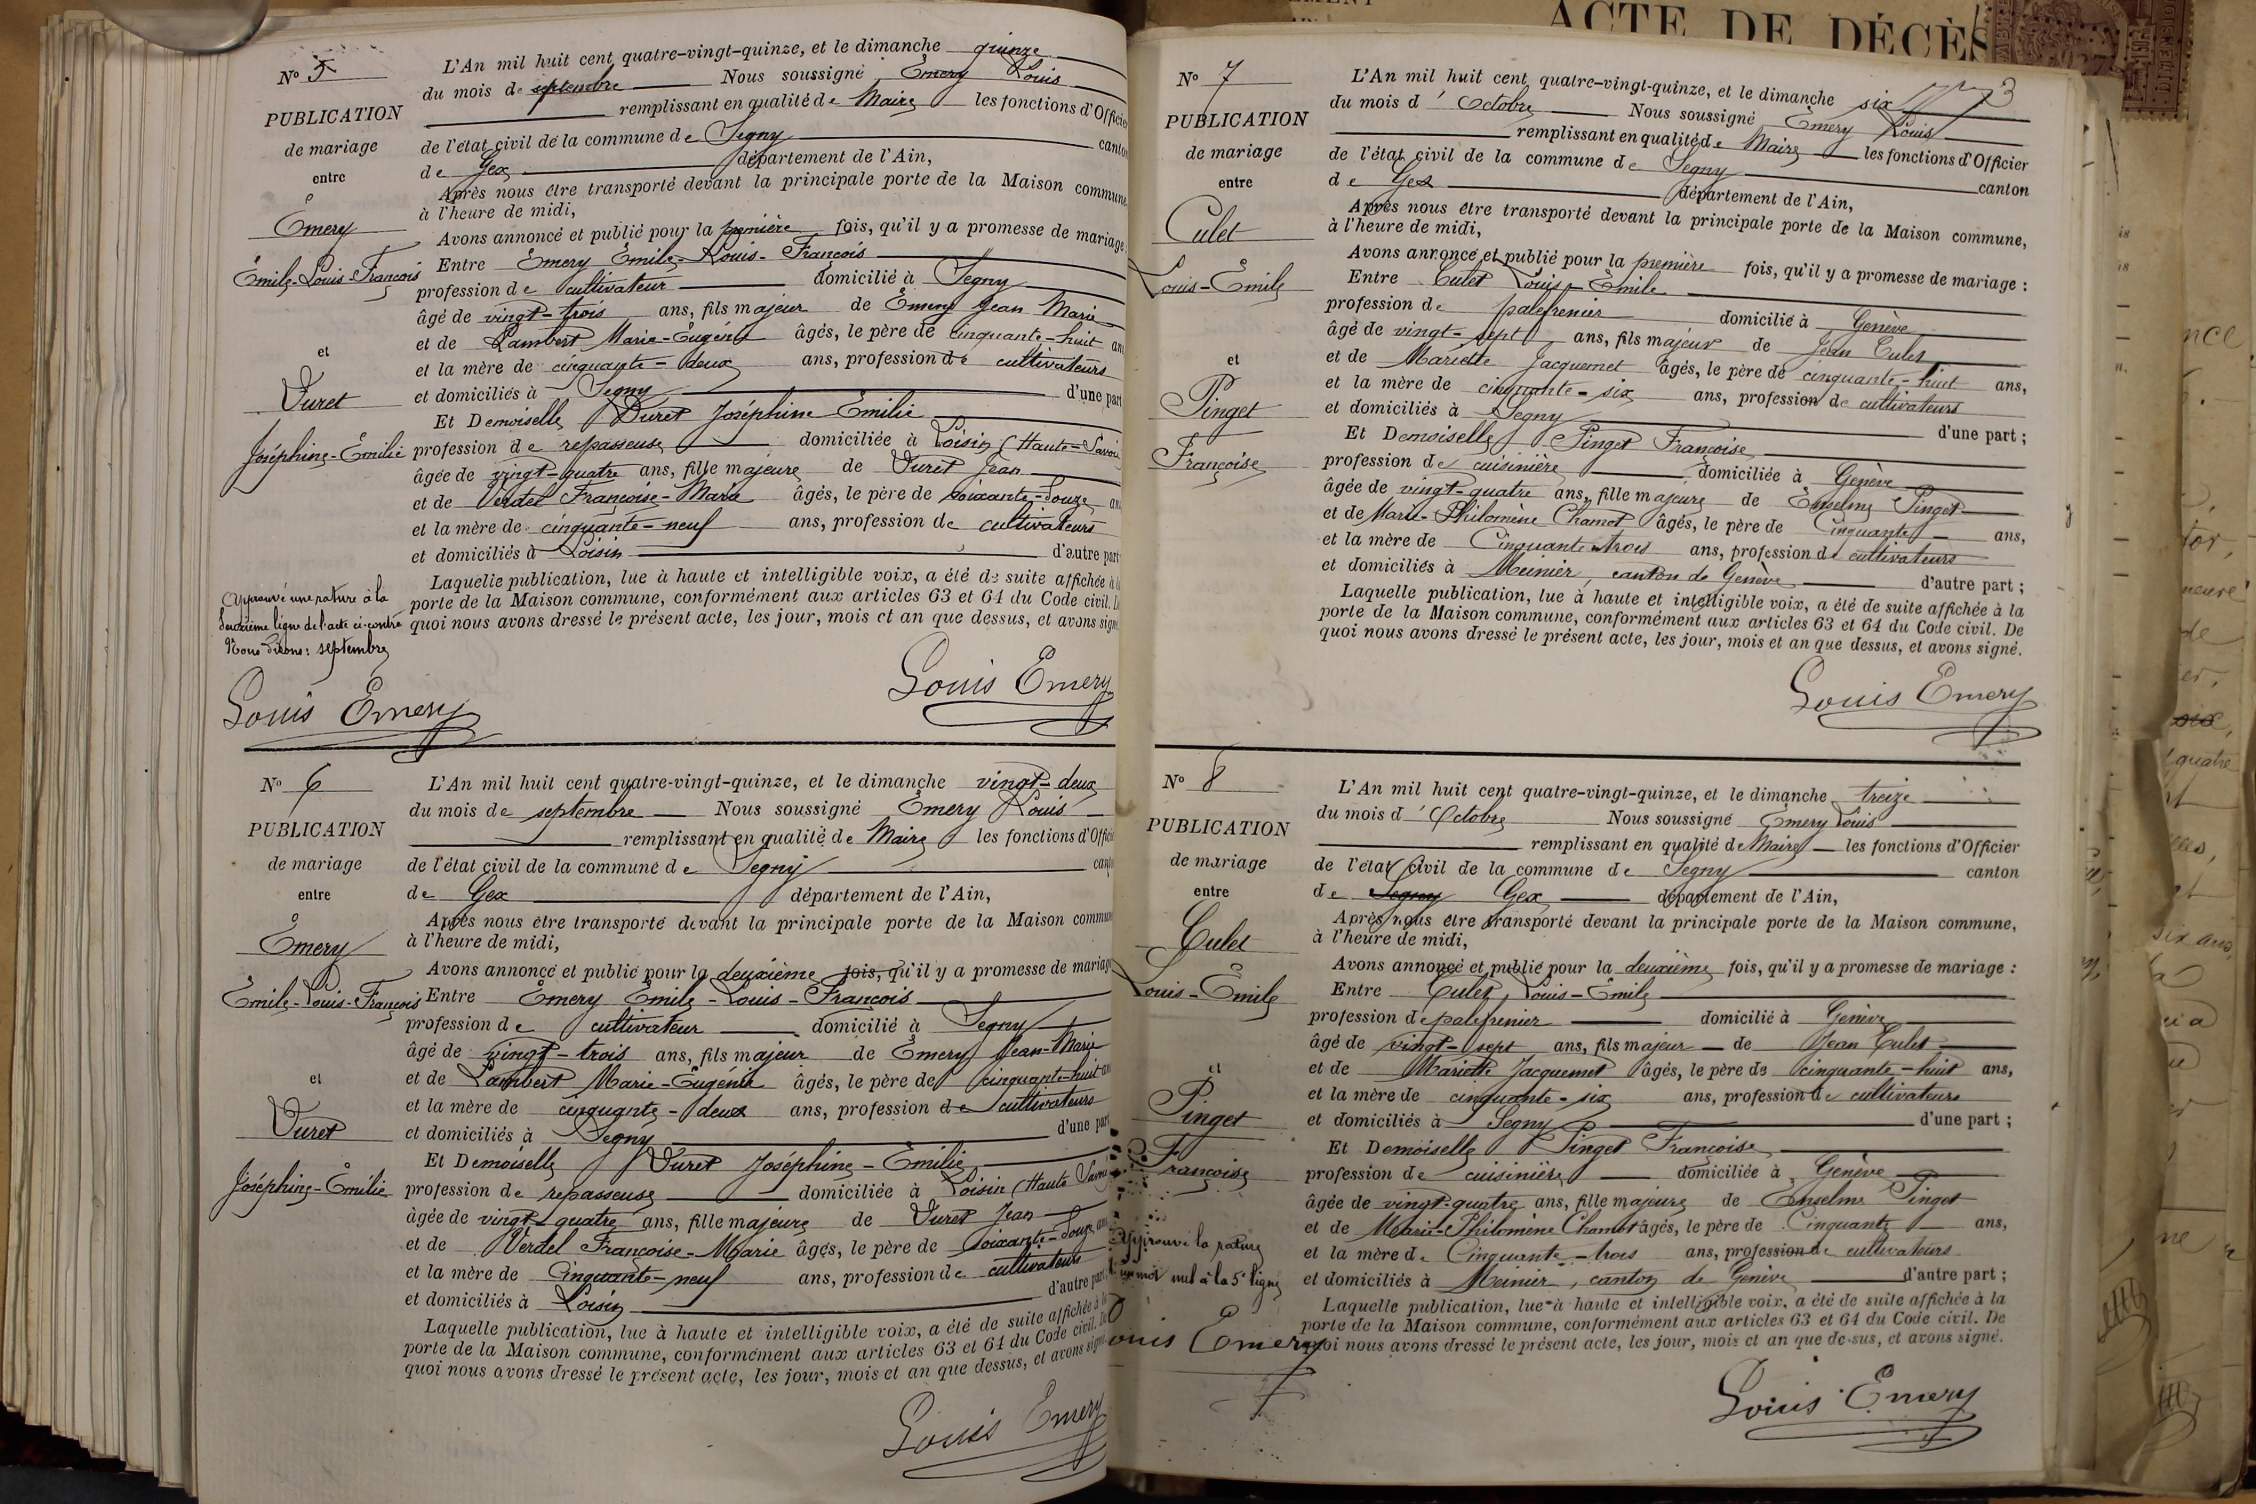 ACTE DE DÉCÈS
N° 5
PUBLICATION
de mariage
entre
Emery
Emile-Louis-François
et
Duret
Joséphine-Emilie
Approuvé une rature à la
deuxième ligne de l'acte ci-contre
Nous disons : septembre
Louis Emery
L'An mil huit cent quatre-vingt-quinze, et le dimanche quinze
du mois de septembre Nous soussigné Emery Louis
remplissant en qualité de Maire les fonctions d'Officier
de l'état civil de la commune de Segny canton
de Gex département de l'Ain,
Après nous être transporté devant la principale porte de la Maison commune,
à l'heure de midi,
Avons annoncé et publié pour la première fois, qu'il y a promesse de mariage :
Entre Emery Emile-Louis-François
profession de cultivateur domicilié à Segny
âgé de vingt-trois ans, fils majeur de Emery Jean Marie
et de Lambert Marie-Eugénie âgés, le père de cinquante-huit ans
et la mère de cinquante-deux ans, profession de cultivateurs
et domiciliés à Segny d'une part
Et Demoiselle Duret Joséphine Emilie
profession de repasseuse domiciliée à Loisin (Haute-Savoie
âgée de vingt-quatre ans, fille majeure de Duret Jean
et de Verdel Françoise-Marie âgés, le père de soixante-douze ans
et la mère de cinquante-neuf ans, profession de cultivateurs
et domiciliés à Loisin d'autre part
Laquelle publication, lue à haute et intelligible voix, a été de suite affichée à la
porte de la Maison commune, conformément aux articles 63 et 64 du Code civil. De
quoi nous avons dressé le présent acte, les jour, mois et an que dessus, et avons signé
Louis Emery
N° 6
PUBLICATION
de mariage
entre
Emery
Emile-Louis-François
et
Duret
Joséphine-Emilie
L'An mil huit cent quatre-vingt-quinze, et le dimanche vingt-deux
du mois de septembre Nous soussigné Emery Louis
remplissant en qualité de Maire les fonctions d'Officier
de l'état civil de la commune de Segny canton
de Gex département de l'Ain,
Après nous être transporté devant la principale porte de la Maison commune
à l'heure de midi,
Avons annoncé et publié pour la deuxième fois, qu'il y a promesse de mariage
Entre Emery Emile-Louis-François
profession de cultivateur domicilié à Segny
âgé de vingt-trois ans, fils majeur de Emery Jean-Marie
et de Lambert Marie-Eugénie âgés, le père de cinquante-huit ans
et la mère de cinquante-deux ans, profession de cultivateurs
et domiciliés à Segny d'une part
Et Demoiselle Duret Joséphine-Emilie
profession de repasseuse domiciliée à Loisin (Haute Savoie
âgée de vingt-quatre ans, fille majeure de Duret Jean
et de Verdel Françoise-Marie âgés, le père de soixante-douze ans
et la mère de Cinquante-neuf ans, profession de cultivateurs
et domiciliés à Loisin d'autre part
Laquelle publication, lue à haute et intelligible voix, a été de suite affichée à la
porte de la Maison commune, conformément aux articles 63 et 64 du Code civil. De
quoi nous avons dressé le présent acte, les jour, mois et an que dessus, et avons signé
Louis Emery
3
N° 7
PUBLICATION
de mariage
entre
Culet
Louis-Emile
et
Pinget
Françoise
L'An mil huit cent quatre-vingt-quinze, et le dimanche six
du mois d'Octobre Nous soussigné Emery Louis
remplissant en qualité de Maire les fonctions d'Officier
de l'état civil de la commune de Segny canton
de Gex département de l'Ain,
Après nous être transporté devant la principale porte de la Maison commune,
à l'heure de midi,
Avons annoncé et publié pour la première fois, qu'il y a promesse de mariage :
Entre Culet Louis-Emile
profession de palefrenier domicilié à Genève
âgé de vingt-sept ans, fils majeur de Jean Culet
et de Mariette Jacquemet âgés, le père de cinquante-huit ans,
et la mère de cinquante-six ans, profession de cultivateurs
et domiciliés à Segny d'une part ;
Et Demoiselle Pinget Françoise
profession de cuisinière domiciliée à Genève
âgée de vingt-quatre ans, fille majeure de Enselme Pinget
et de Marie-Philomène Chamot âgés, le père de Cinquante ans,
et la mère de Cinquante-trois ans, profession de cultivateurs
et domiciliés à Meinier, canton de Genève d'autre part ;
Laquelle publication, lue à haute et intelligible voix, a été de suite affichée à la
porte de la Maison commune, conformément aux articles 63 et 64 du Code civil. De
quoi nous avons dressé le présent acte, les jour, mois et an que dessus, et avons signé.
Louis Emery
N° 8
PUBLICATION
de mariage
entre
Culet
Louis-Emile
et
Pinget
Françoise
Approuvé la rature
d'un mot nul à la 5e ligne
Louis Emery
L'An mil huit cent quatre-vingt-quinze, et le dimanche treize
du mois d'Octobre Nous soussigné Emery Louis
remplissant en qualité de Maire les fonctions d'Officier
de l'état civil de la commune de Segny canton
de Segny Gex département de l'Ain,
Après nous être transporté devant la principale porte de la Maison commune,
à l'heure de midi,
Avons annoncé et publié pour la deuxième fois, qu'il y a promesse de mariage :
Entre Culet, Louis-Emile
profession de palefrenier domicilié à Genève
âgé de vingt-sept ans, fils majeur de Jean Culet
et de Mariette Jacquemet âgés, le père de cinquante-huit ans,
et la mère de cinquante-six ans, profession de cultivateurs
et domiciliés à Segny d'une part ;
Et Demoiselle Pinget Françoise
profession de cuisinière domiciliée à Genève
âgée de vingt-quatre ans, fille majeure de Enselme Pinget
et de Marie-Philomène Chamot âgés, le père de Cinquante ans,
et la mère de Cinquante-trois ans, profession de cultivateurs
et domiciliés à Meinier, canton de Genève d'autre part ;
Laquelle publication, lue à haute et intelligible voix, a été de suite affichée à la
porte de la Maison commune, conformément aux articles 63 et 64 du Code civil. De
quoi nous avons dressé le présent acte, les jour, mois et an que dessus, et avons signé.
Louis Emery